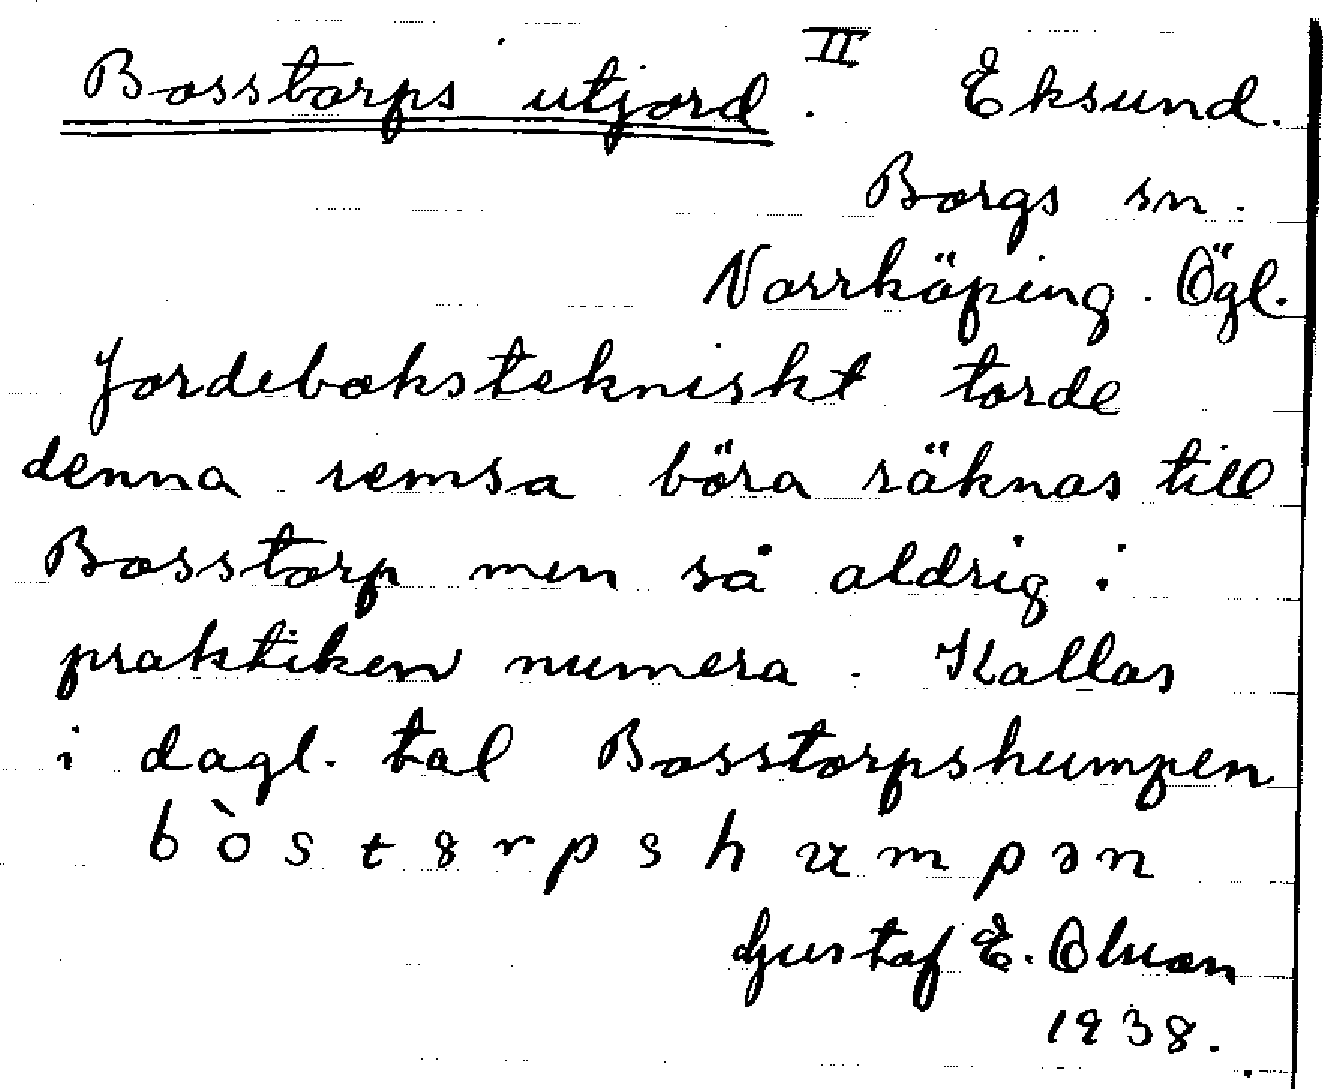 Bosstorps utjord. II Eksund.
Borgs sn.
Norrköping. Ögl.
Jordebokstekniskt torde
denna remsa böra räknas till
Bosstorp men så aldrig i
praktiken numera. Kallas
i dagl. tal Bosstorpshumpen
bòstɵrpshumpən
Gustaf E. Olsson
1938.